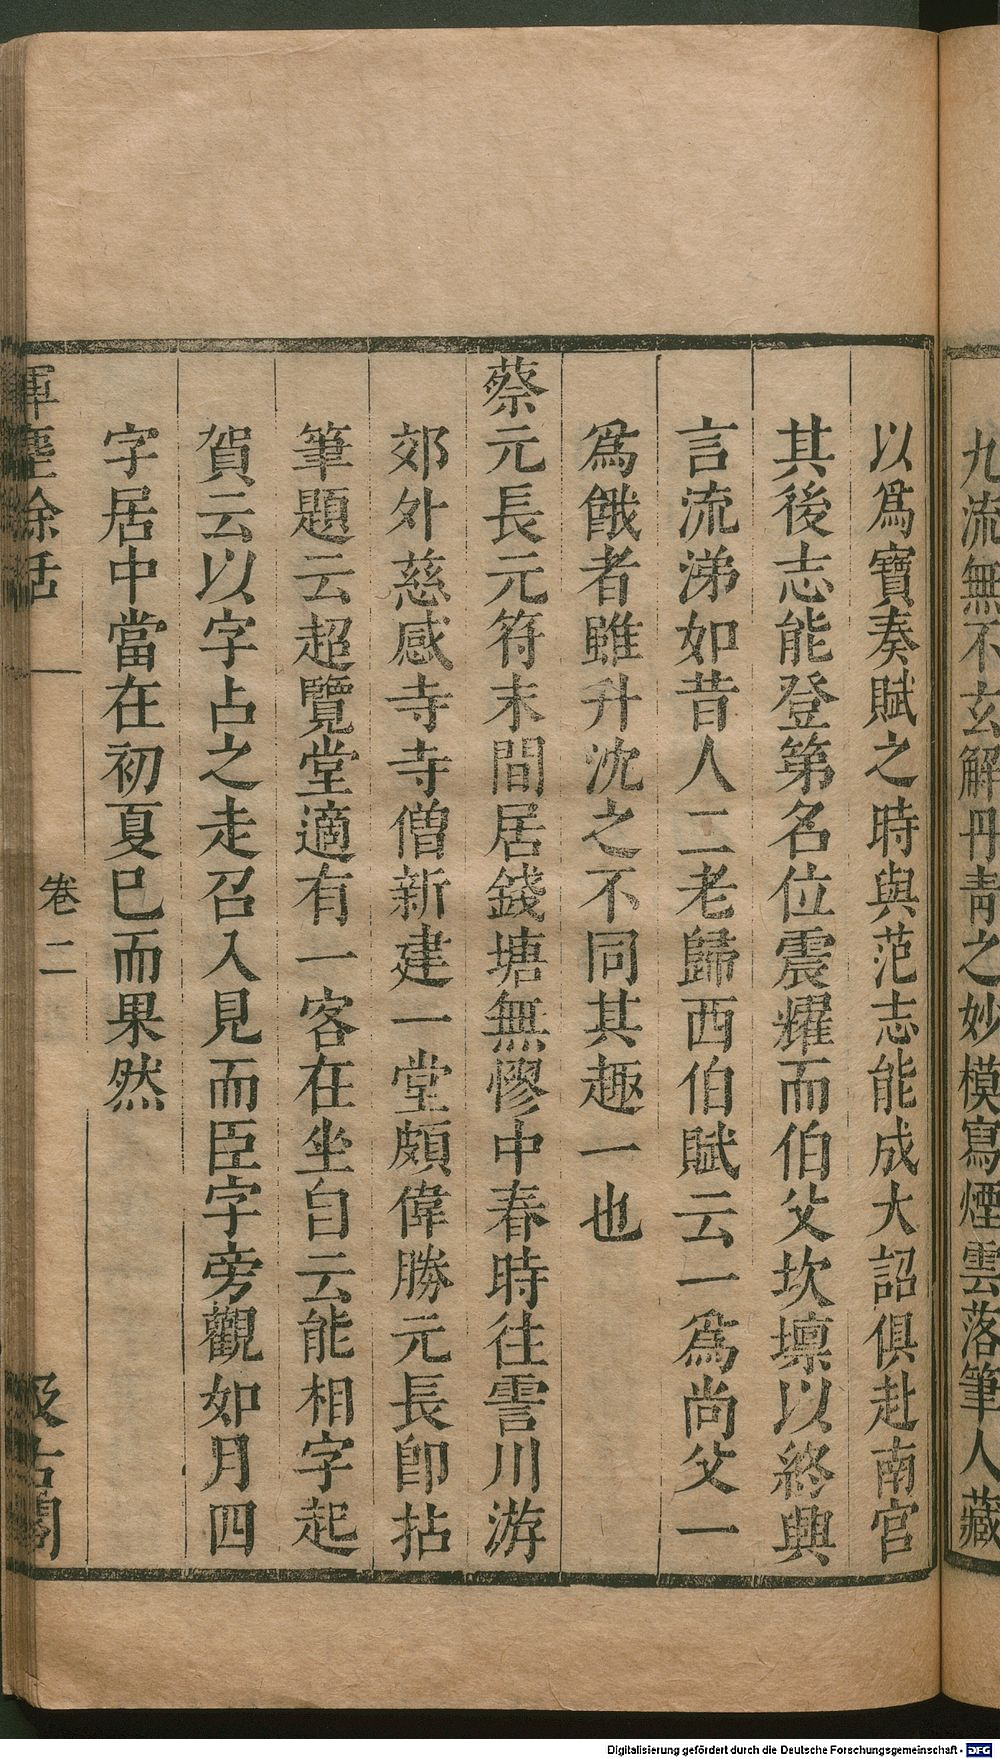 九流無不玄解丹青之妙模寫煙雲落筆人藏
以爲寶奏賦之時與范志能成大詔俱赴南宫
其後志能登第名位震耀而伯父坎壈以終興
言流涕如昔人二老歸西伯賦云一爲尚父一
爲餓者雖升沈之不同其趣一也
蔡元長元符末間居錢塘無憀中春時往霅川游
郊外慈感寺寺僧新建一堂頗偉勝元長卽拈
筆題云超覽堂適有一客在坐自云能相字起
賀云以字占之走召入見而臣字旁觀如月四
字居中當在初夏已而果然
揮麈餘話
卷二
汲古閣
Digitalisierung gefördert durch die Deutsche Forschungsgemeinschaft - DFG